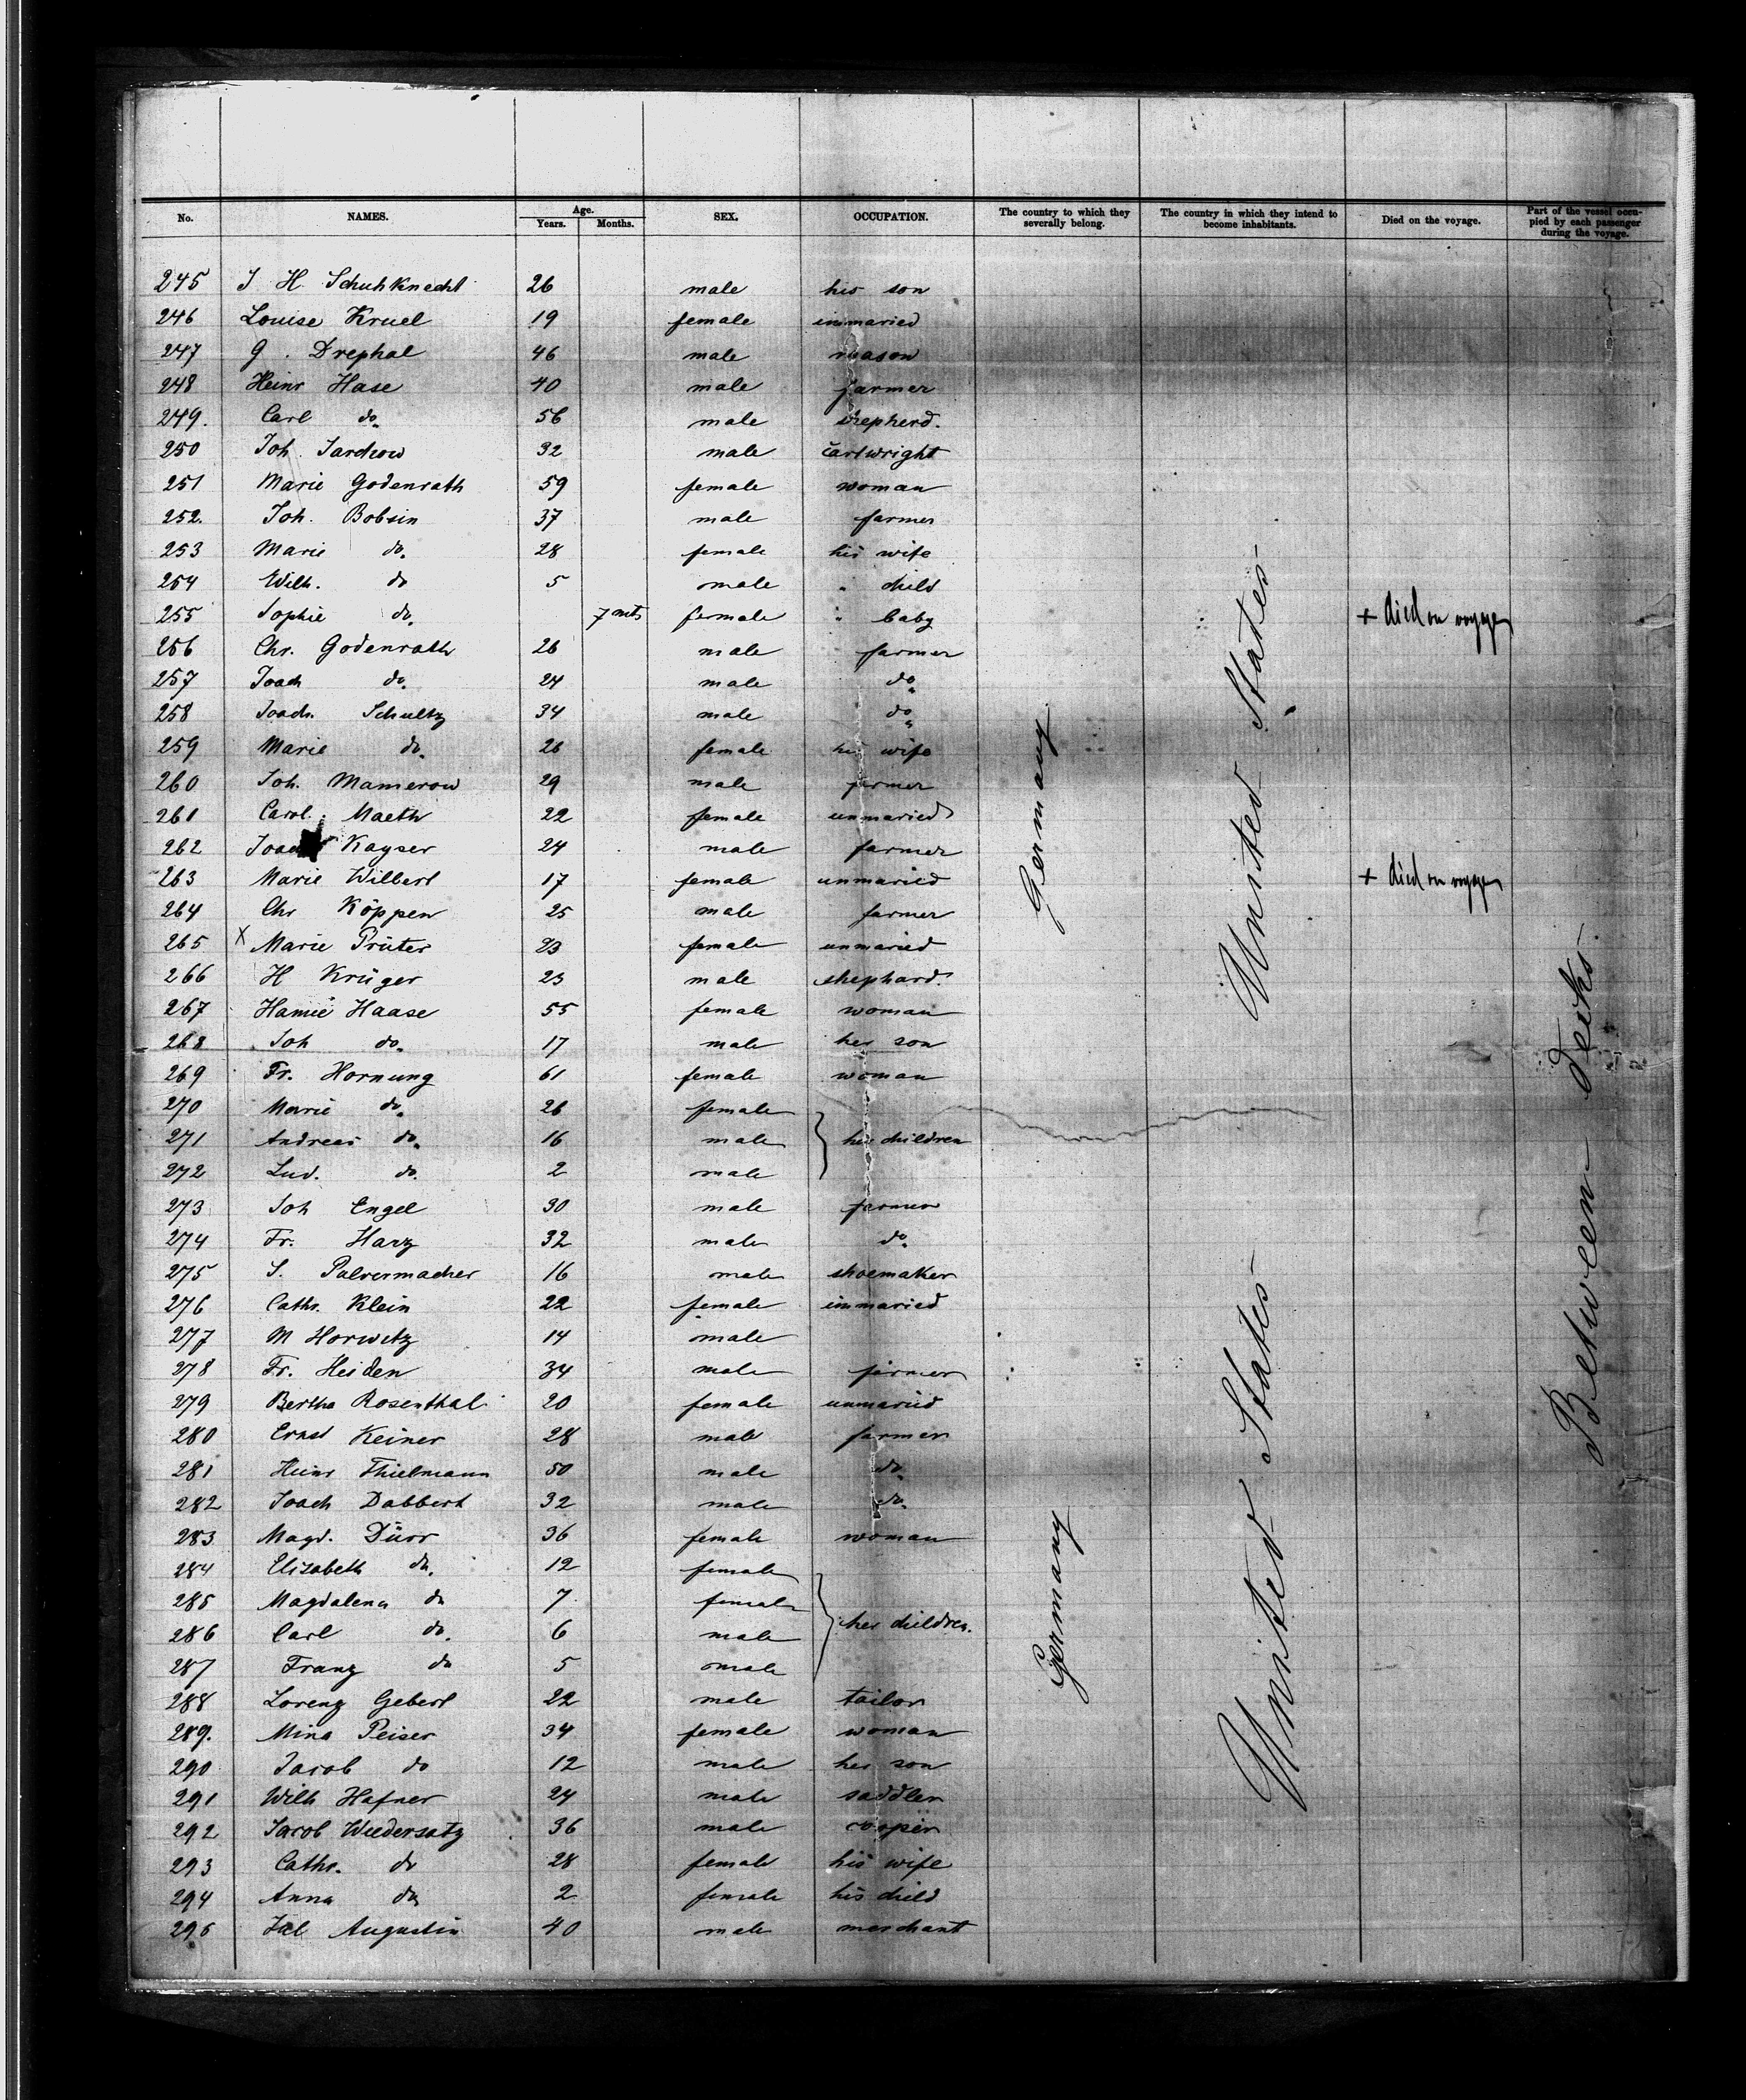 No. NAMES. Age. Years. Months. SEX. OCCUPATION. The country to which they severally belong. The country in which they intend to become inhabitants. Died on the voyage. Part of the vessel occupied by each passenger during the voyage.
245 J H. Schuhknecht 26 male his son
246 Louise Kruel 19 female unmaried
247 G. Drephal 46 male mason
248 Heinr Hase 40 male farmer
249. Carl do. 56 male shepherd.
250 Joh. Jarchow 32 male cartwright
251 Marie Godenrath 59 female woman
252. Joh. Bobsin 37 male farmer
253 Marie do. 28 female his wife
254 Wilh. do 5 male " child
255 Sophie do. 7 mts female " baby + died on voyage
256 Chr. Godenrath 26 male farmer
257 Joach do. 24 male do.
258 Joach. Schultz 34 male do.
259 Marie do. 26 female his wife
260 Joh. Mamerow 29 male farmer
261 Carol. Maeth 22 female unmaried
262 Joach Kayser 24 male farmer
263 Marie Wilbert 17 female unmaried + died on voyage
264 Chr Köppen 25 male farmer
265 X Marie Prüter 23 female unmaried
266 H Krüger 23 male shephard.
267 Hanne Haase 55 female woman
268 Joh do. 17 male her son
269 Fr. Hornung 61 female woman
270 Marie do. 26 female
271 Andreas do. 16 male her children
272 Lud. do. 2 male
273 Joh Engel 30 male farmer
274 Fr. Harz 32 male do.
275 S. Pulvermacher 16 male shoemaker
276 Cathr. Klein 22 female unmaried
277 M Horwitz 14 male
278 Fr. Heiden 34 male farmer
279 Bertha Rosenthal 20 female unmaried
280 Ernst Keiner 28 male farmer
281 Heinr Thielmann 50 male do.
282 Joach Dabbert 32 male do.
283 Magd. Dürr 36 female woman
284 Elisabeth do. 12 female
285 Magdalena do 7 female
286 Carl do. 6 male her children.
287 Franz do 5 male
288 Lorenz Gebert 22 male tailor
289. Mina Peiser 34 female woman
290 Jacob do 12 male her son
291 Wilh Hafner 24 male saddler
292 Jacob Wiedersatz 36 male cooper
293 Cathr. do 28 female his wife
294 Anna do 2 female his child
295 Augustin 40 male merchant
Germany
United States
Germany
United States
Between decks